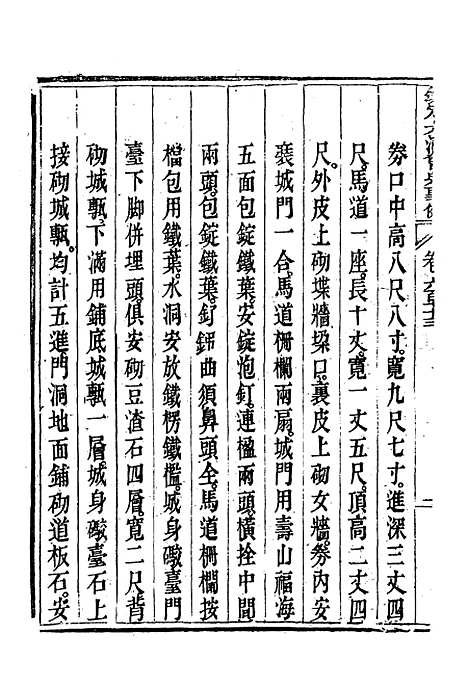 欽定大清會典事例 卷六百六十三 二
券口中高八尺八寸。寬九尺七寸。進深三丈四
尺。馬道一座。長十丈。寬一丈五尺。頂高二丈四
尺。外皮上砌堞牆垛口。裏皮上砌女牆。券內安
裝城門一合。馬道柵欄兩扇。城門用壽山福海
五面包錠鐵葉。安錠泡釘。連楹兩頭。橫拴中間
兩頭。包錠鐵葉。釕錦曲須鼻頭全。馬道柵欄按
檔包用鐵葉。水洞安放鐵楞鐵檻。城身礮臺門
臺下腳併埋頭。俱安砌豆渣石四層。寬二尺。背
砌城甎。下滿用鋪底城甎一層。城身礮臺石上
接砌城甎。均計五進門洞地面鋪砌道板石。安